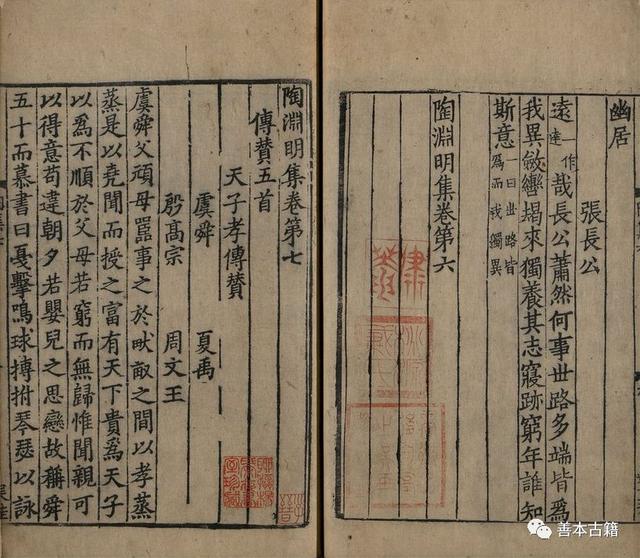 幽居
張長公
遠一作達哉長公蕭然何事世路多端皆爲
我異斂轡朅來獨養其志寢跡窮年誰知
斯意一曰世路皆爲而我獨異
陶淵明集卷第六
陶淵明集卷第七
傳贊五首
天子孝傳贊
虞舜 夏禹
殷髙宗 周文王
虞舜父頑母嚚事之於畎畝之間以孝蒸
蒸是以堯聞而授之富有天下貴爲天子
以爲不順於父母若窮而無歸惟聞親可
以得意苟違朝夕若嬰兒之思戀故稱舜
五十而慕書曰戛擊鳴球搏拊琴瑟以詠
善本古籍